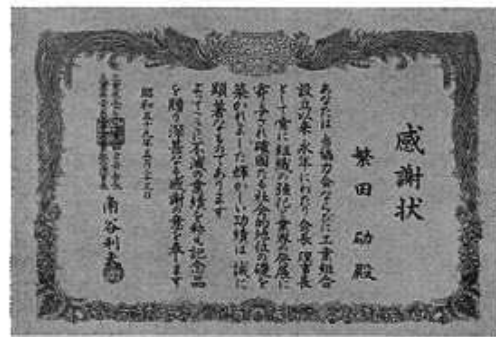 感謝状
繁田 功殿
あなたは 当協力会ならびに工業組合
設立以来 永年にわたり会長 理事長
として常に組織の強化と業界の発展に
寄与され確固たる社会的地位の礎を
築かれました輝かしい功績は 誠に
顕著なものであります
よってここに不滅の業績を称え記念品
を贈り深甚なる感謝の意を表します
昭和五十九年
南谷利夫